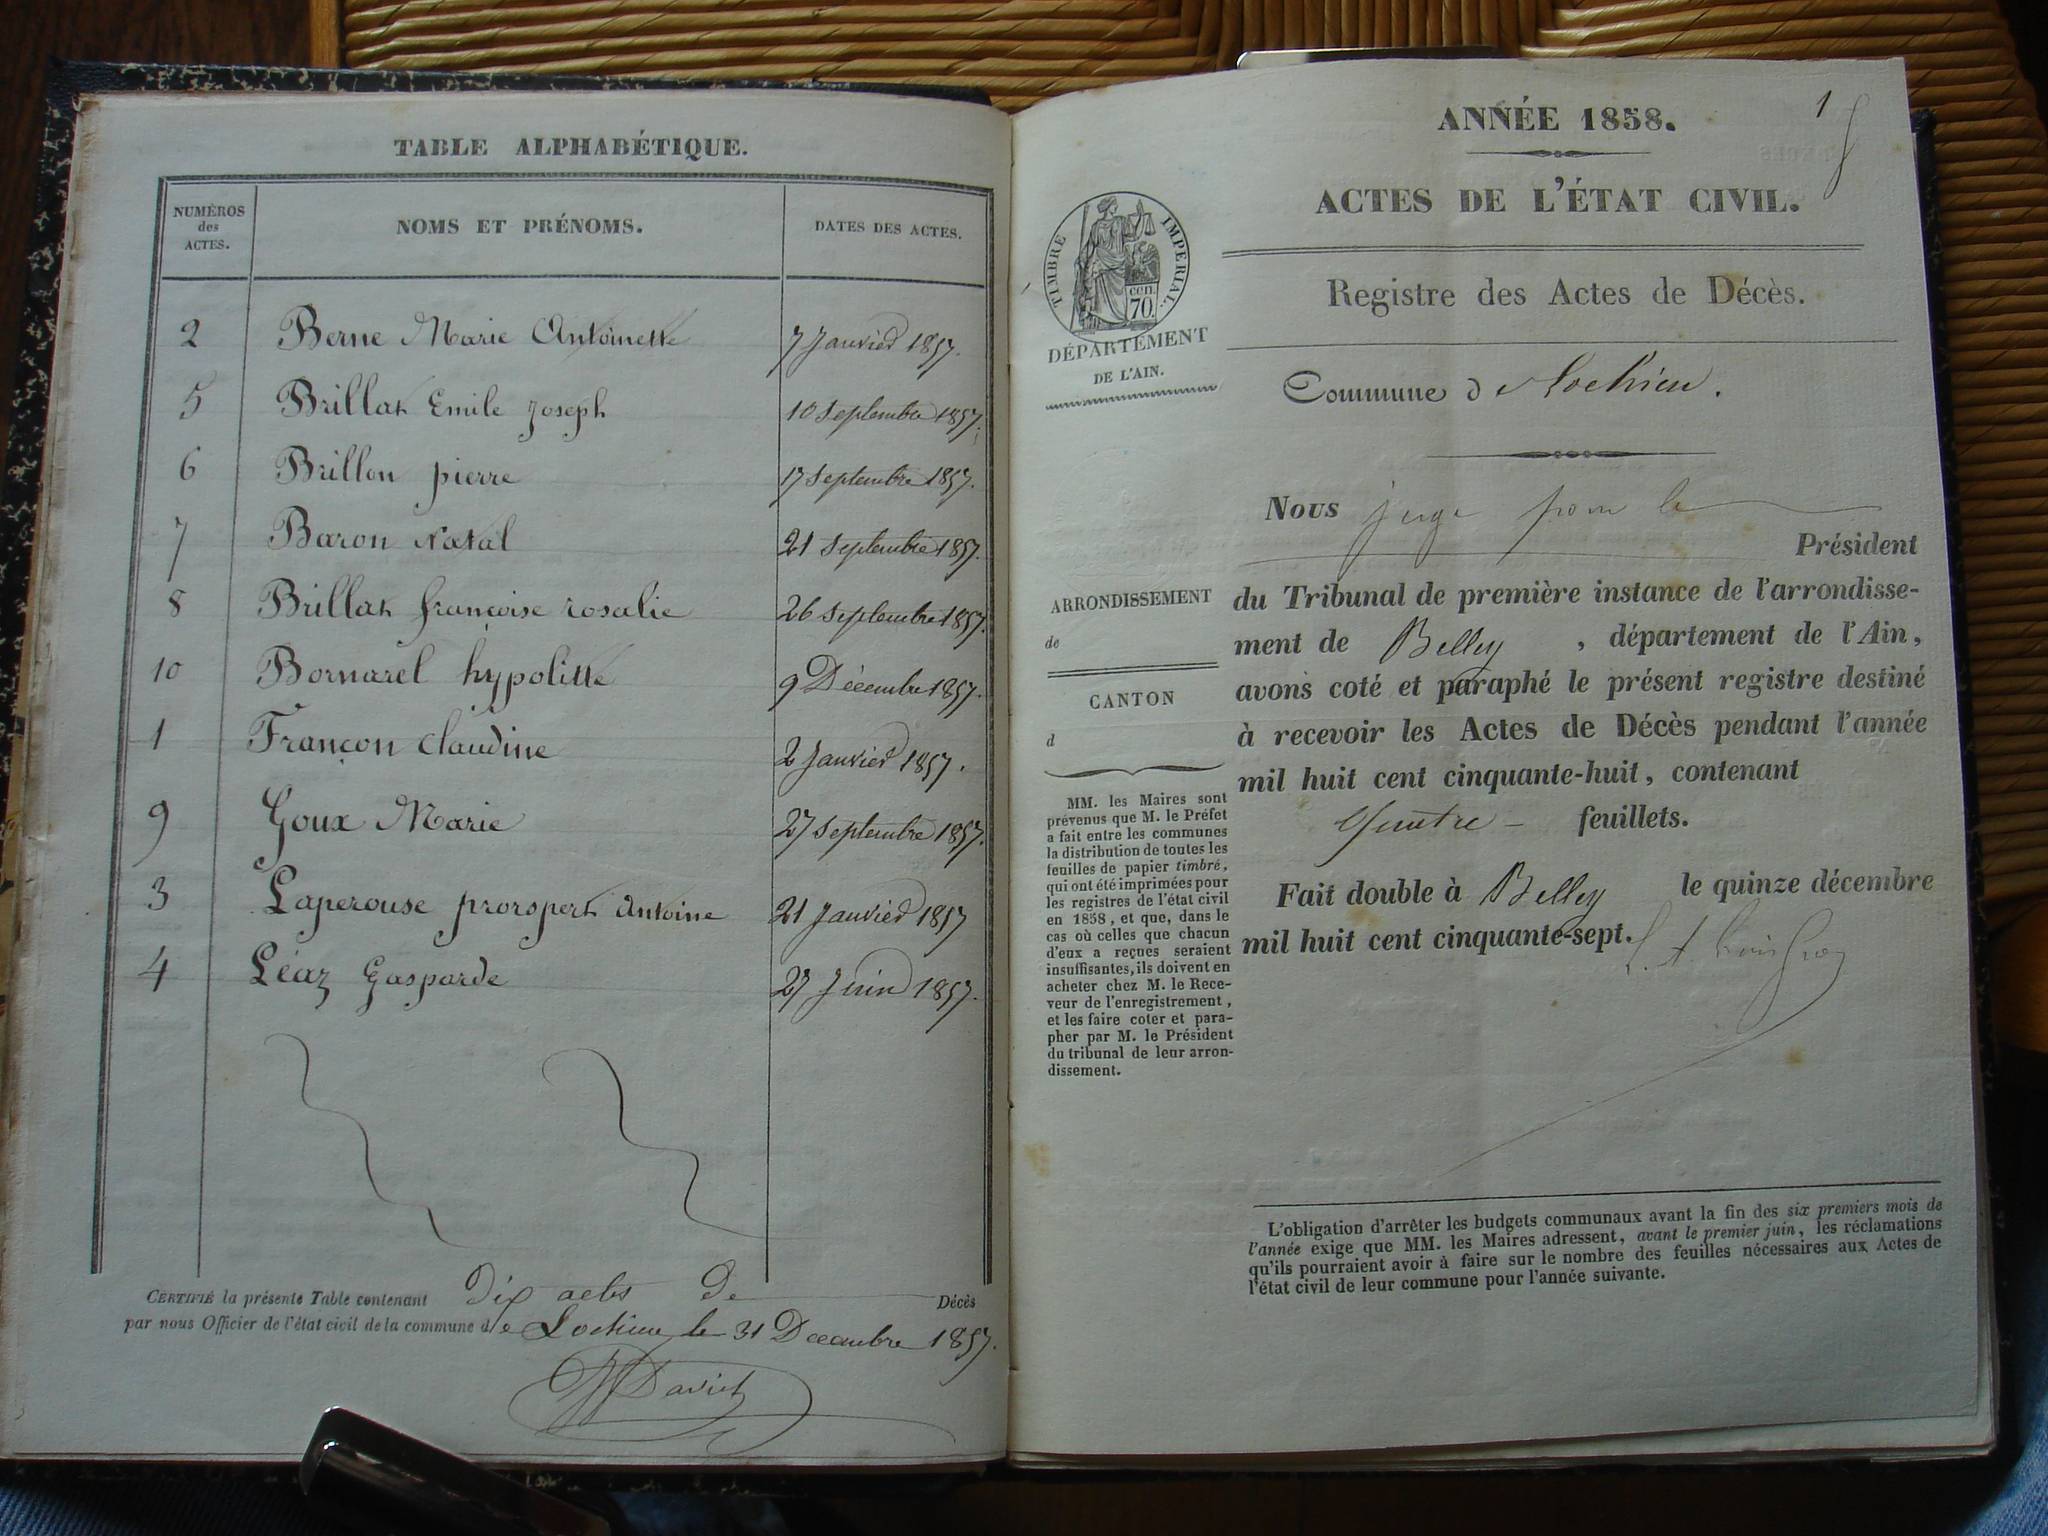 TABLE ALPHABÉTIQUE.
NUMÉROS
des
ACTES.
NOMS ET PRÉNOMS.
DATES DES ACTES.
2 Berne Marie Antoinette 7 Janvier 1857.
5 Brillat Emile Joseph 10 Septembre 1857.
6 Brillon pierre 17 Septembre 1857.
7 Baron Natal 21 Septembre 1857.
8 Brillat françoise rosalie 26 Septembre 1857.
10 Bornarel hypolitte 9 Décembre 1857.
1 Françon Claudine 2 Janvier 1857.
9 Goux Marie 27 Septembre 1857.
3 Laperouse prorspert Antoine 21 Janvier 1857
4 Léaz Gasparde 27 Juin 1857.
CERTIFIÉ la présente Table contenant Dix actes De Décès
par nous Officier de l'état civil de la commune de Lochieu le 31 Décembre 1857.
Daviet
1
ANNÉE 1858.
ACTES DE L'ÉTAT CIVIL.
TIMBRE IMPÉRIAL.
cen.
70.
DÉPARTEMENT
DE L'AIN.
Registre des Actes de Décès.
Commune d e Lochieu.
ARRONDISSEMENT
de
CANTON
d
MM. les Maires sont
prévenus que M. le Préfet
a fait entre les communes
la distribution de toutes les
feuilles de papier timbré,
qui ont été imprimées pour
les registres de l'état civil
en 1858, et que, dans le
cas où celles que chacun
d'eux a reçues seraient
insuffisantes, ils doivent en
acheter chez M. le Rece-
veur de l'enregistrement,
et les faire coter et para-
pher par M. le Président
du tribunal de leur arron-
dissement.
Nous juge pour le
Président
du Tribunal de première instance de l'arrondisse-
ment de Belley, département de l'Ain,
avons coté et paraphé le présent registre destiné
à recevoir les Actes de Décès pendant l'année
mil huit cent cinquante-huit, contenant
feuillets.
Fait double à Belley le quinze décembre
mil huit cent cinquante-sept.
L'obligation d'arrêter les budgets communaux avant la fin des six premiers mois de
l'année exige que MM. les Maires adressent, avant le premier juin, les réclamations
qu'ils pourraient avoir à faire sur le nombre des feuilles nécessaires aux Actes de
l'état civil de leur commune pour l'année suivante.